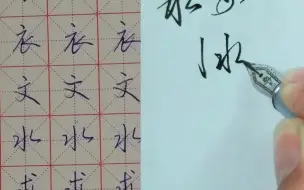 衣衣衣
文文文
水水水
求求求
冰